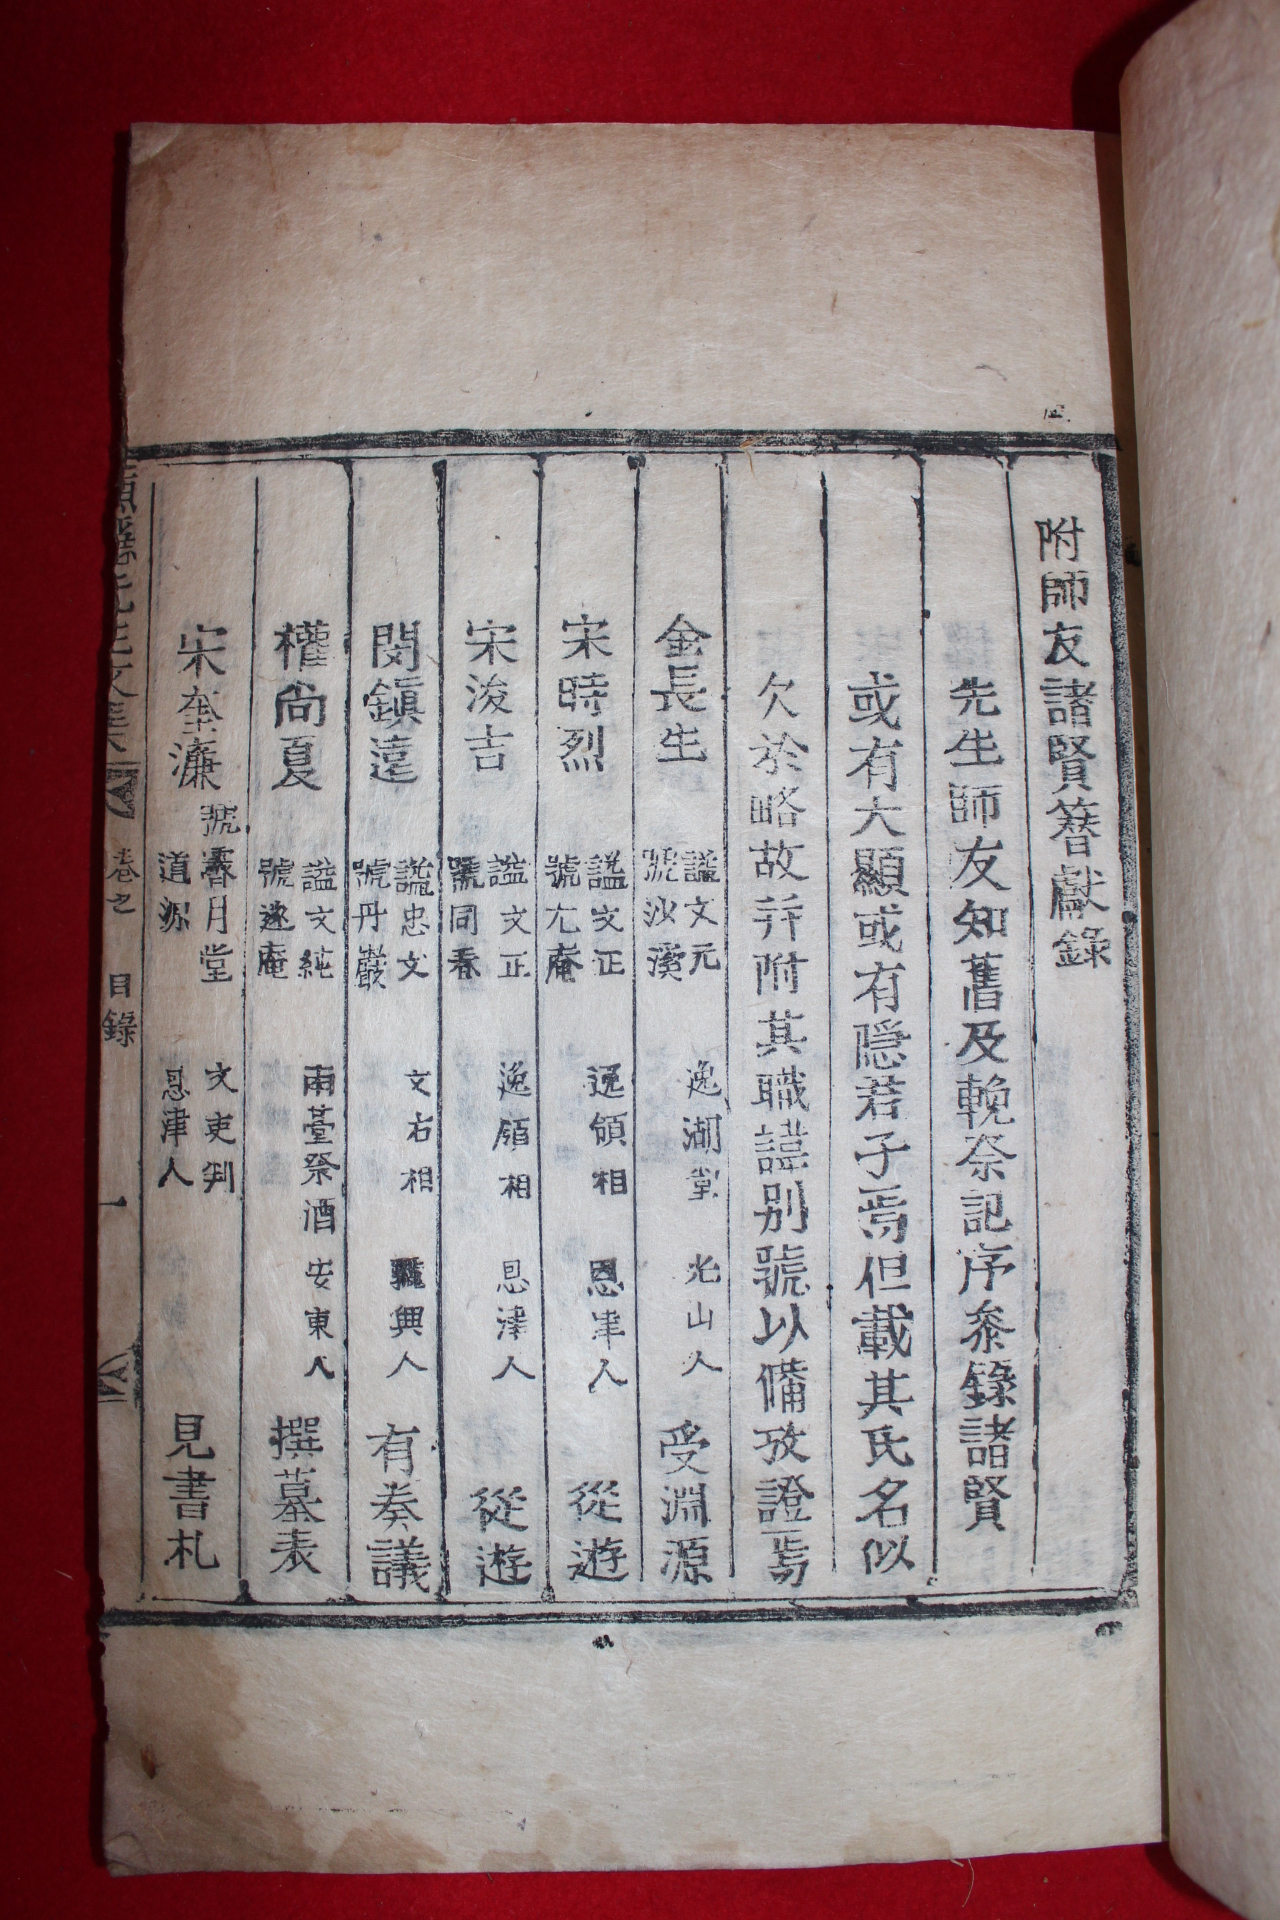 附師友諸賢簪獻錄
先生師友知舊及輓祭記序叅錄諸賢
或有大顯或有隱君子焉但載其氏名似
欠於略故幷附其職諱別號以備攷證焉
金長生 諡文元 號沙溪 逸湖堂 光山人 受淵源
宋時烈 諡文正 號尤庵 逸領相 恩津人 從遊
宋浚吉 諡文正 號同春 逸領相 恩津人 從遊
閔鎭遠 諡忠文 號丹巖 文右相 驪興人 有奏議
權尙夏 諡文純 號遂庵 南臺祭酒 安東人 撰墓表
宋奎濂 號霽月堂 道源 文吏判 恩津人 見書札
隱先生文集 卷之 目錄 一